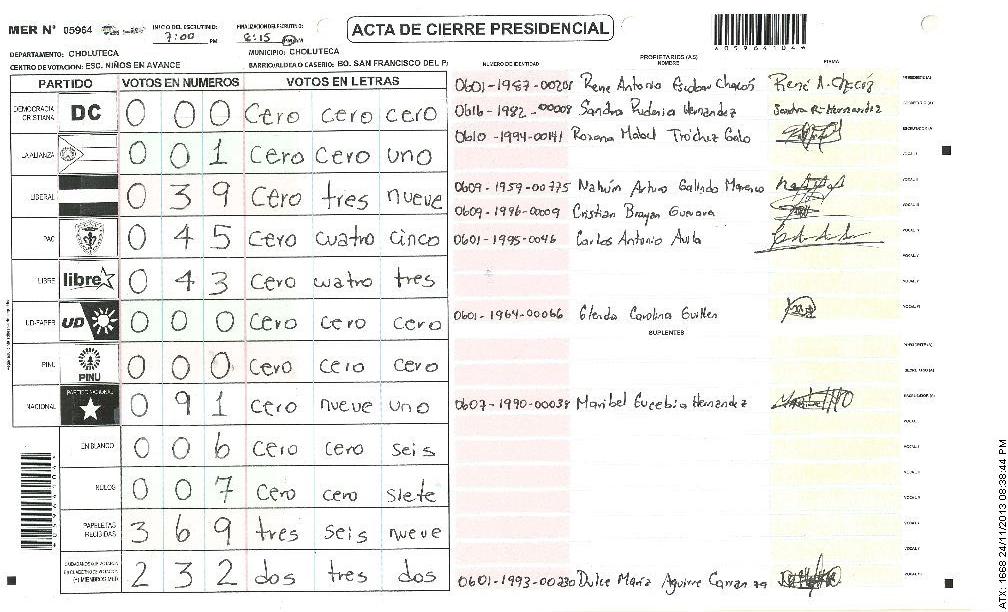 MER Nº 05964
INICIO DEL ESCRUTINIO: 7:00 PM
FINALIZACION DEL ESCRUTINIO: 8:15 PM
ACTA DE CIERRE PRESIDENCIAL
DEPARTAMENTO: CHOLUTECA
MUNICIPIO: CHOLUTECA
CENTRO DE VOTACION: ESC. NIÑOS EN AVANCE
BARRIO/ALDEA O CASERIO: BO. SAN FRANCISCO DEL P
PARTIDO VOTOS EN NUMEROS VOTOS EN LETRAS
DEMOCRACIA CRISTIANA DC 0 0 0 Cero cero cero
LA ALIANZA 0 0 1 Cero Cero uno
LIBERAL 0 3 9 Cero tres nueve
PAC 0 4 5 Cero cuatro cinco
LIBRE libre 0 4 3 Cero cuatro tres
UD-FAPER UD 0 0 0 Cero cero cero
PINU PINU 0 0 0 Cero cero cero
NACIONAL PARTIDO NACIONAL 0 9 1 Cero nueve uno
EN BLANCO 0 0 6 Cero cero seis
NULOS 0 0 7 Cero cero siete
PAPELETAS RECIBIDAS 3 6 9 tres seis nueve
(+) MIEMBROS MER 2 3 2 dos tres dos
NUMERO DE IDENTIDAD
PROPIETARIOS (AS)
NOMBRE
FIRMA
0601-1987-00208 Rene Antonio Escobar Chacós René A. Chacós
0616-1982-00008 Sandra Hernández Sandra R. Hernandez
0610-1994-00141 Roxana Mabel Tróchez Galo
0609-1959-00775 Nahún Arturo Galindo
0609-1996-0009 Cristian Brayan Guevara
0601-1995-0046 Carlos Antonio Avila
0601-1964-00066 Glenda Carolina Guillen
SUPLENTES
0607-1990-00038 Maribel Eucebia Hernandez
0601-1993-00230 Dulce María Aguirre Carranza
ATX: 1668 24/11/2013 08:38:44 PM